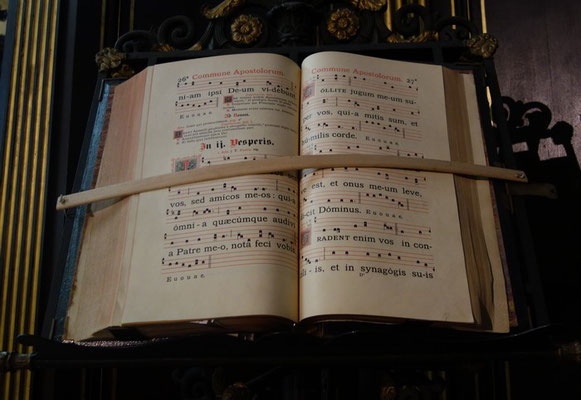 26*
Communs Apostolorum.
niam ipsi Deum vidébunt.
E u o u a e.
In ij. Vesperis.
vos, sed amicos me-os: qui-a
ómni-a quæcúmque audívi
a Patre me-o, nota feci vobis.
E u o u a e.
Communs Apostolorum.
27*
TOLLITE jugum me-um su-
per vos, qui-a mitis sum, et
húmilis corde. E u o u a e.
ve est, et onus me-um leve,
dicit Dóminus. E u o u a e.
TRADENT enim vos in con-
cíli-is, et in synagógis su-is